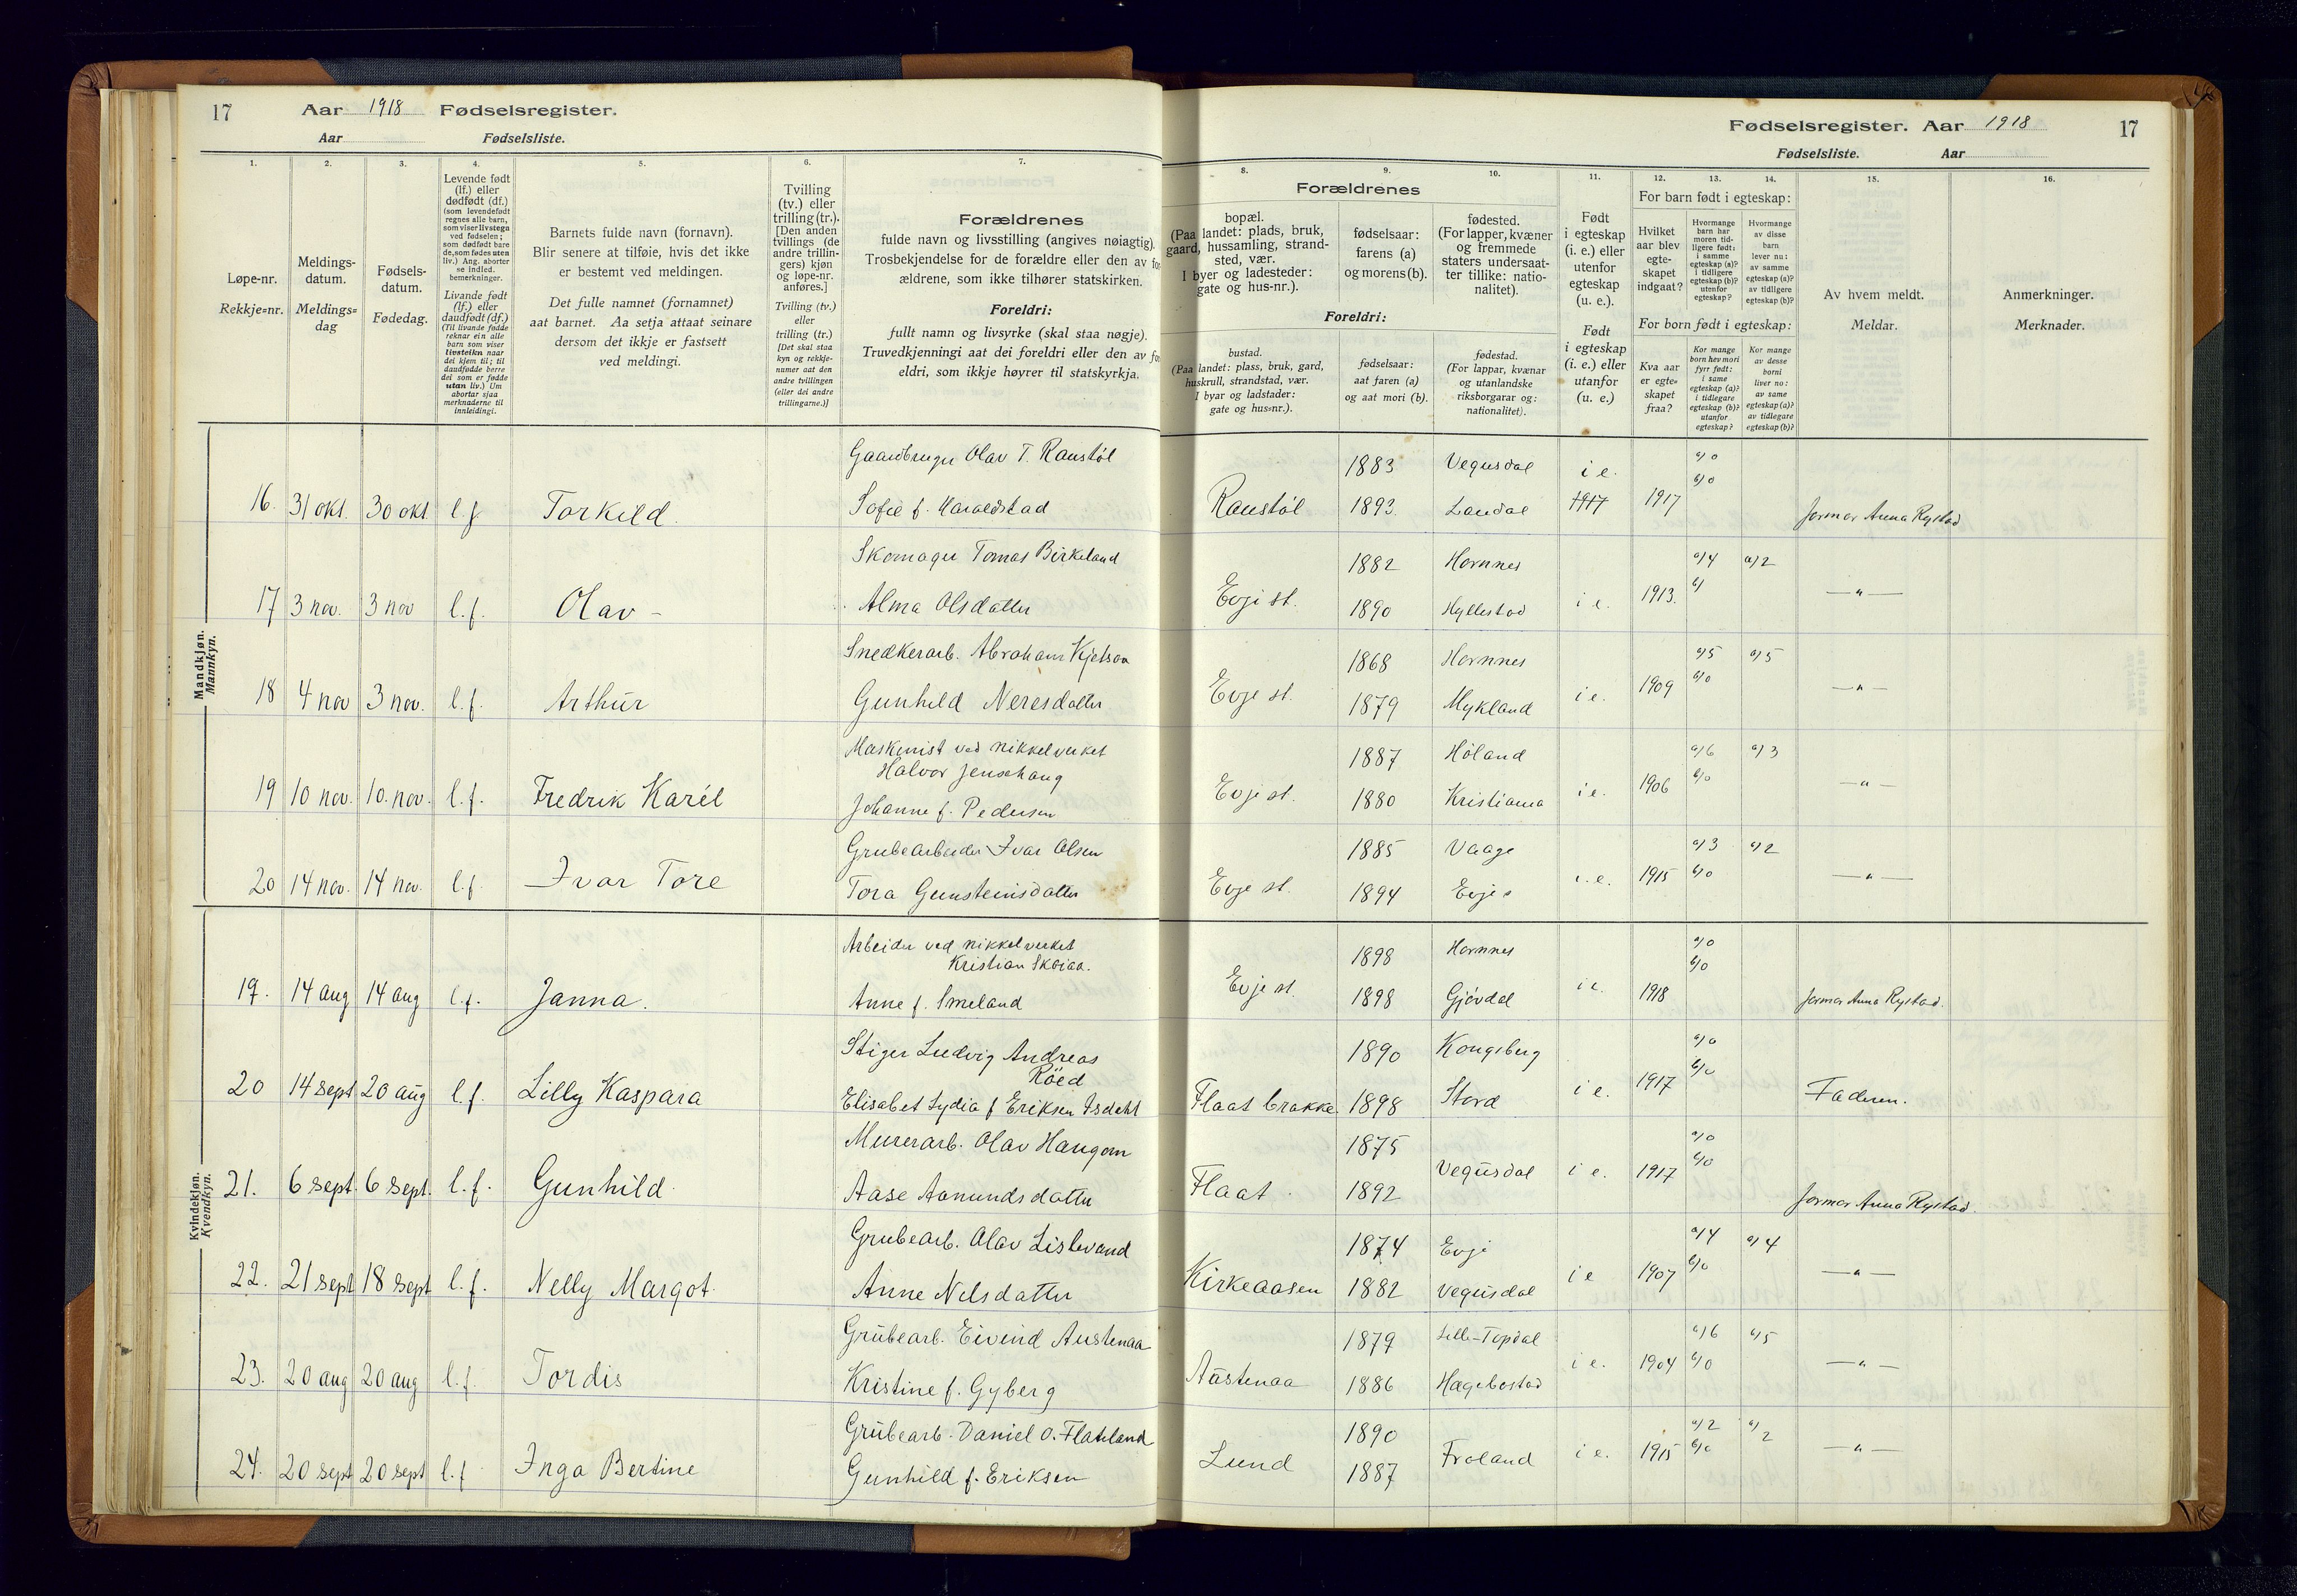 17 Aar 1918 Fødselsregister.
Aar Fødselsliste.
Fødselsregister. Aar 1918 17
Fødselsliste. Aar
1. 2. 3. 4. 5. 6. 7.
Løpe-nr.
Rekkje=nr.
Meldings-
datum.
Meldings=
dag
Fødsels-
datum.
Fødedag.
Levende født
(lf.) eller
dødfødt (df.)
(som levendefødt
regnes alle barn,
som viser livstegn
ved fødselen;
som dødfødt bare
de, som fødes uten
liv.) Ang. aborter
se indled.
bemerkninger.
Livande født
(lf.) eller
daudfødt (df.)
(Til livande fødde
reknar ein alle
born som viser
livsteikn naar
dei kjem til; til
daudfødde berre
dei som er fødde
utan liv.) Um
abortar sjaa
merknaderne til
innleidingi.
Barnets fulde navn (fornavn).
Blir senere at tilføie, hvis det ikke
er bestemt ved meldingen.
Det fulle namnet (fornamnet)
aat barnet. Aa setja attaat seinare
dersom det ikkje er fastsett
ved meldingi.
Tvilling
(tv.) eller
trilling (tr.).
[Den anden
tvillings (de
andre trillin-
gers) kjøn
og løpe-nr.
anføres.]
Tvilling (tv.)
eller
trilling (tr.)
[Det skal staa
kyn og rekkje-
numer aat den
andre tvillingen
(eller dei andre
trillingarne.)]
Forældrenes
fulde navn og livsstilling (angives nøiagtig).
Trosbekjendelse for de forældre eller den av for
ældrene, som ikke tilhører statskirken.
Foreldri:
fullt namn og livsyrke (skal staa nøgje).
Truvedkjenningi aat dei foreldri eller den av for
eldri, som ikkje høyrer til statskyrkja.
8. 9. 10. 11. 12. 13. 14. 15. 16.
Forældrenes
bopæl.
(Paa landet: plads, bruk,
gaard, hussamling, strand-
sted, vær.
I byer og ladesteder:
gate og hus-nr.).
fødselsaar:
farens (a)
og morens (b).
fødested.
(For lapper, kvæner
og fremmede
staters undersaat-
ter tillike: natio-
nalitet).
Foreldri:
bustad.
(Paa landet: plass, bruk, gard,
huskrull, strandstad, vær.
I byar og ladstader:
gate og hus=nr.).
fødselsaar:
aat faren (a)
og aat mori (b).
fødestad.
(For lappar, kvænar
og utanlandske
riksborgarar og:
nationalitet).
Født
i egteskap
(i. e.) eller
utenfor
egteskap
(u. e.).
Født
i egteskap
(i. e.) eller
utanfor
(u. e.)
For barn født i egteskap:
Hvilket
aar blev
egte-
skapet
indgaat?
Hvormange
barn har
moren tid-
ligere født:
i samme
egteskap (a)?
i tidligere
egteskap (b)?
utenfor
egteskap?
Hvormange
av disse
barn
lever nu:
av samme
egteskap (a)?
av tidligere
egteskap (b)?
For born født i egteskap:
Kva aar
er egte=
skapet
fraa?
Kor mange
born hev mori
fyrr født:
i same
egteskap (a)?
i tidlegare
egteskap (b)?
utanfor
egteskap?
Kor mange
av desse
borni
liver no:
av same
egteskap (a)?
av tidlegare
egteskap (b)?
Av hvem meldt.
Meldar.
Anmerkninger.
Merknader.
Mandkjøn.
Mannkyn.
Gaardbruger Olav T. Raustøl 1883 Vegusdal i e. a) 0 b) 0
16. 31 okt. 30 okt. l. f. Torkild. Sofie f. Haraldstad Raustøl 1893. Laudal 1917 1917 Jormor Anna Rystad
Skomager Tomas Birkeland 1882 Hornnes a) 4 a) 2
17 3 nov. 3 nov l. f. Olav – Alma Olsdatter Evje st. 1890 Hyllestad i e. 1913. b) — " —
Snedkerarb. Abraham Kjetson 1868 Hornnes a) 5 a) 5
18 4 nov 3 nov. l. f. Arthur Gunhild Neresdatter Evje st. 1879 Mykland i e. 1909 b) 0 — " —
Maskinist ved nikkelverket
Halvor Jensehaug 1887 Høland a) 6 a) 3
19 10 nov. 10. nov. l. f. Fredrik Karél Johanne f. Pedersen Evje st. 1880 Kristiania i e. 1906 b) 0 — " —
Grubearbeider Ivar Olsen 1885 Vaage a) 3 a) 2
20 14 nov. 14 nov. l. f. Ivar Tore Tora Gunsteinsdatter Evje st. 1894 Evje s i. e. 1915 b) 0 — " —
Kvindekjøn.
Kvendkyn.
Arbeider ved nikkelverket
Kristian Skaiaa. 1898 Hornnes a) 0 b) 0
19. 14 aug 14 aug l. f. Janna. Anne f. Smeland Evje st. 1898 Gjøvdal i e. 1918 Jormor Anna Rystad.
Stiger Ludvig Andreas
Röed 1890 Kongsberg a) 0 b) 0
20 14 sept 20 aug l. f. Lilly Kaspara Elisabet Lydia f Eriksen Isdahl Flaat brakke 1898 Stord i e. 1917 Faderen.
Murerarb. Olav Haugom 1875 a) 0 b) 0
21. 6 sept. 6 sept. l. f. Gunhild. Aase Aanundsdatter Flaat. 1892 Vegusdal i e. 1917 Jormor Anna Rystad.
Grubearb. Olav Lislevand 1874 Evje a) 4 a) 4
22. 21 sept 18 sept l. f. Nelly Margot. Anne Nilsdatter Kirkeaasen 1882 Vegusdal i e 1907 b) 0 — " —
Grubearb. Eivind Austenaa 1879 Lille-Topdal a) 6 a) 5
23. 20 aug 20 aug l. f. Tordis Kristine f. Gyberg Austenaa 1886 Hægebostad i e. 1904 b) 0 — " —
Grubearb. Daniel O. Flateland 1890 a) 2 a) 2
24. 20 sept 20 sept l. f Inga Bertine Gunhild f. Eriksen Lund 1887 Froland i e. 1915 b) 0 — " —